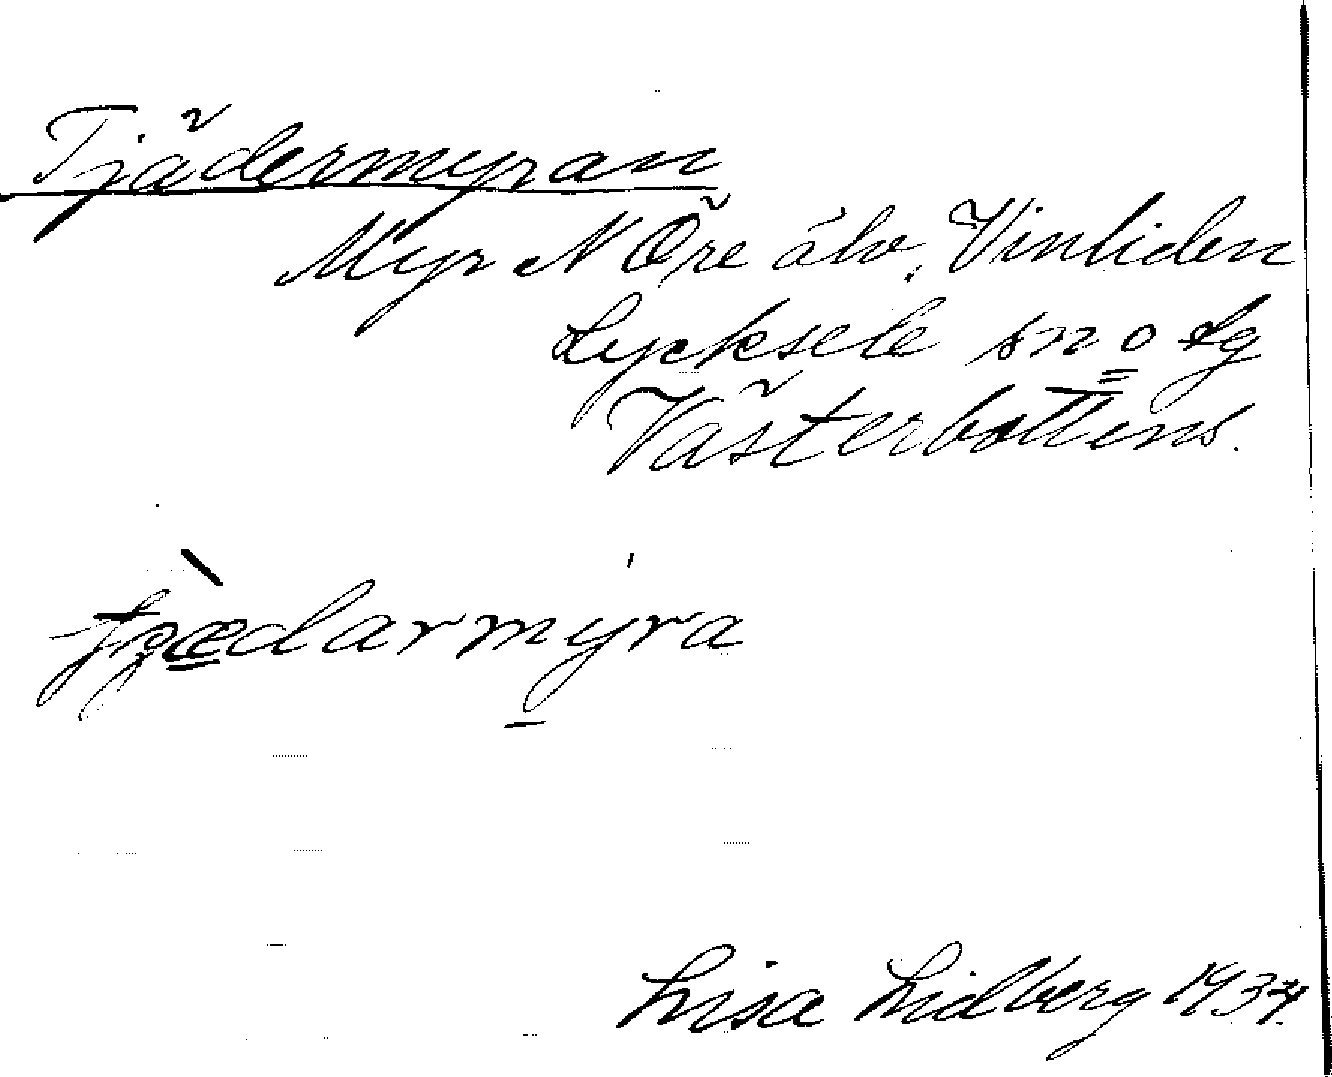 Tjädermyran
Myr N Öre älv, Vinliden
Lycksele sn o lg
Västerbottens.
Lisa Lidberg 1934